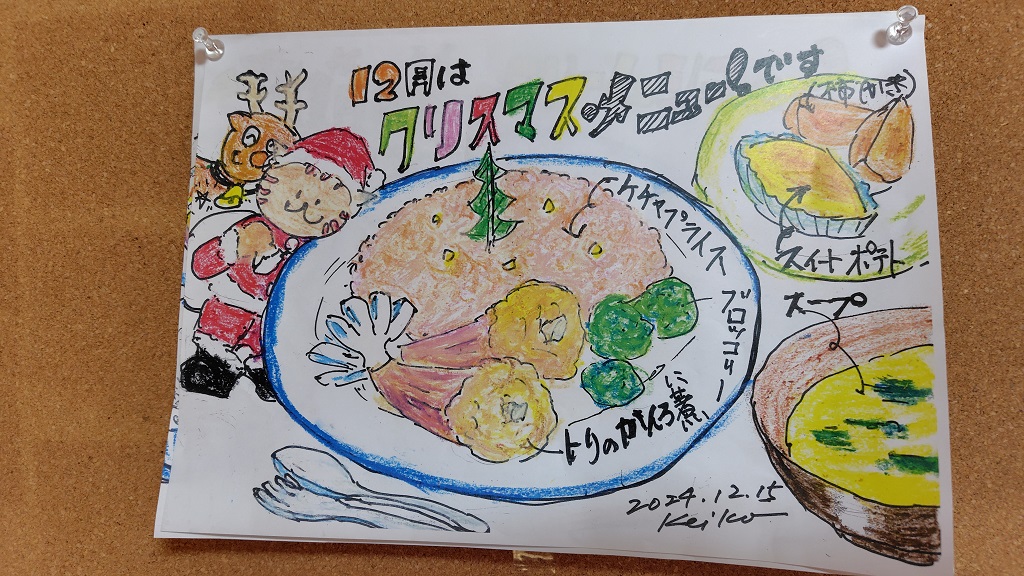 12月は
クリスマスメニュー!です
柿(かき)
スイートポテト
ケチャプライス
スープ
ブロッコリー
トリのかんろ煮
2024.12.15
Keiko